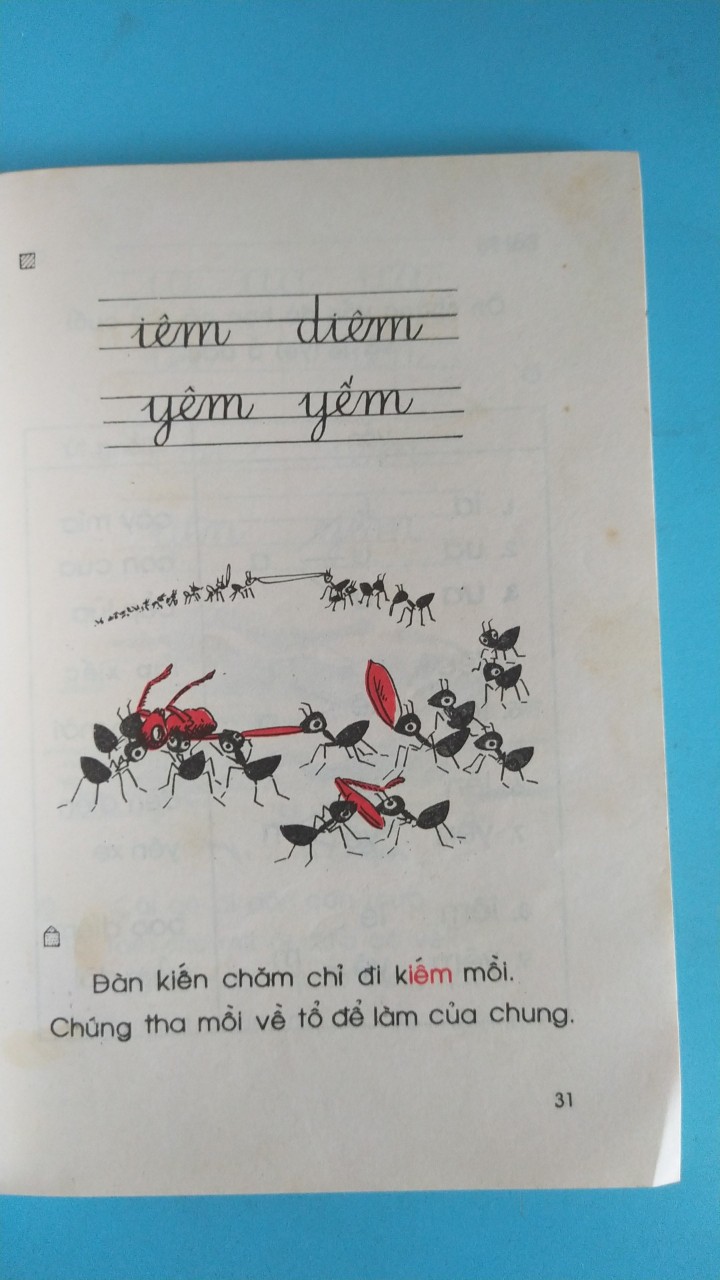 iêm diêm
yêm yếm
Đàn kiến chăm chỉ đi kiếm mồi.
Chúng tha mồi về tổ để làm của chung.
31